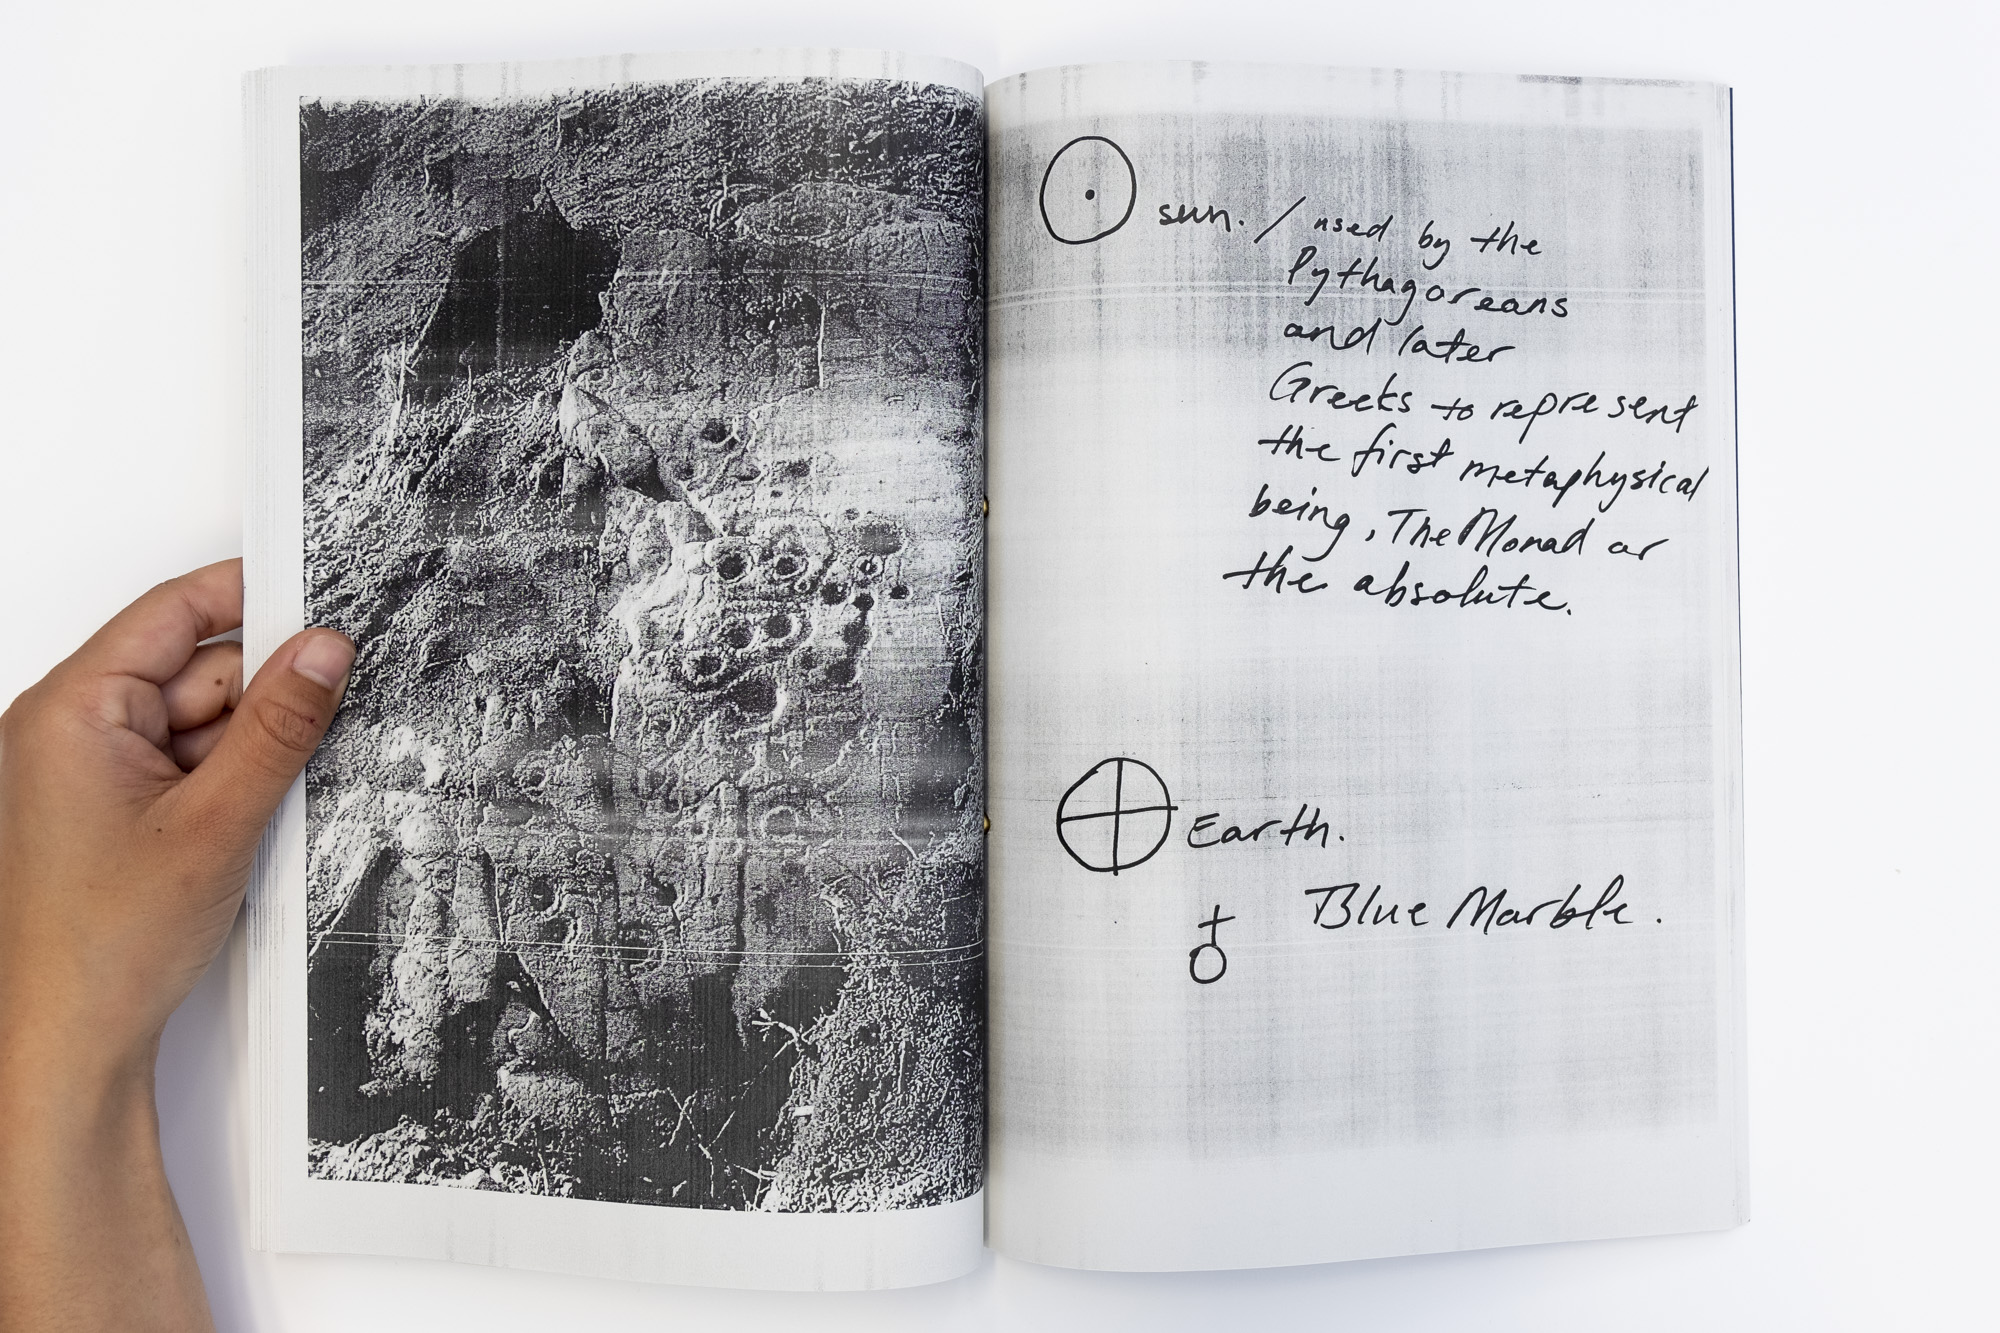 sun. / used by the
Pythagoreans
and later
Greeks to represent
the first metaphysical
being, The Monad or
the absolute.
Earth.
Blue Marble.